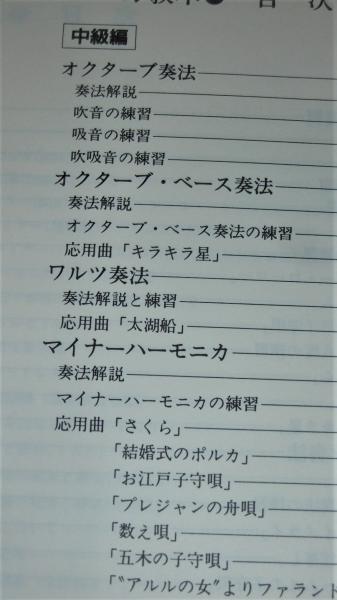 目次
中級編
オクターブ奏法
奏法解説
吹音の練習
吸音の練習
吹吸音の練習
オクターブ・ベース奏法
奏法解説
オクターブ・ベース奏法の練習
応用曲「キラキラ星」
ワルツ奏法
奏法解説と練習
応用曲「太湖船」
マイナーハーモニカ
奏法解説
マイナーハーモニカの練習
応用曲「さくら」
「結婚式のポルカ」
「お江戸子守唄」
「プレジャンの舟唄」
「数え唄」
「五木の子守唄」
「〝アルルの女〟よりファランド